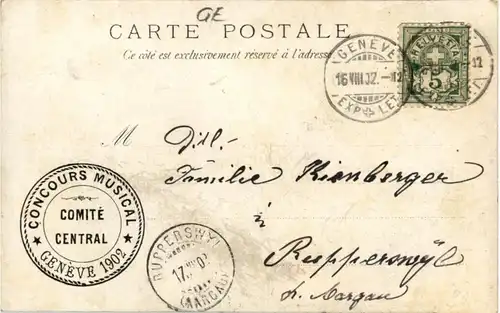 GE
CARTE POSTALE
Ce côté est exclusivement réservé à l'adresse
GENÈVE
16.VIII.02.—12
EXP. LET.
HELVETIA
5
M
Familie Kienberger
in
Rupperswyl
Aargau
CONCOURS MUSICAL
COMITÉ
CENTRAL
GENÈVE 1902
RUPPERSWYL
17.VIII.02
(AARGAU)